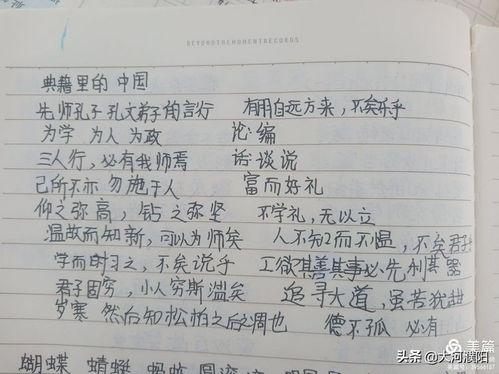 BEYONDTHEMOMENTRECORDS
典籍里的 中国
先师孔子 孔文弟子的言行 有朋自远方来，不矣乐乎
为学 为人 为政 论 编
三人行，必有我师焉 话 谈 说
己所不亦 勿施于人 富而好礼
仰之弥高，钻之弥坚 不学礼，无以立
温故而知新，可以为师矣 人不知而不愠，不矣君子
学而时习之，不矣说乎 工欲其善其事必先利其器
君子固穷，小人穷斯滥矣 追寻大道，虽苦犹甜
岁寒 然后知松柏之后之凋也 德不孤 必有
蝴蝶 蜻蜓
美篇
头条 @大河濮阳